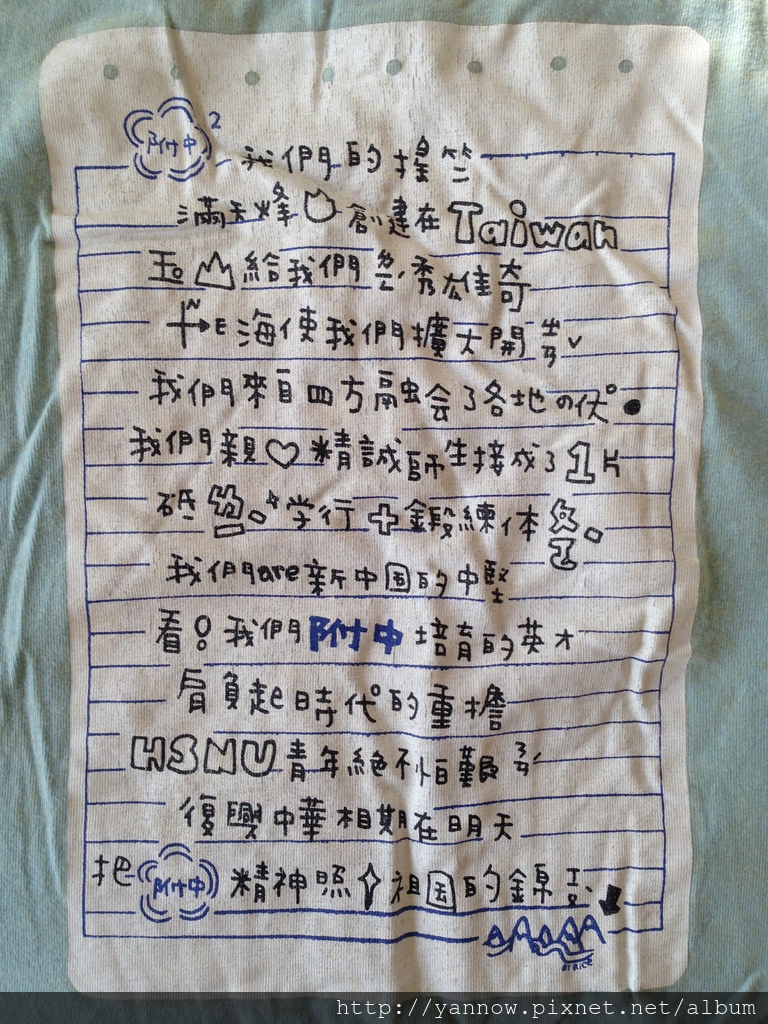 附中² 我們的搖竺
滿天烽 創建在Taiwan
玉 給我們ㄌㄧㄥˊ秀雄奇
N E 海使我們擴大開ㄓㄢˇ
我們來自四方融会了各地の代
我們親♡精誠師生接成了1片
砥 学行十鍛練体
我們are新中国的中堅
看!我們附中培育的英才
肩負起時代的重擔
HSNU青年絕不怕艱ㄋㄢˊ
復興中華相期在明天
把附中精神照 祖国的錦
http://yannow.pixnet.net/album